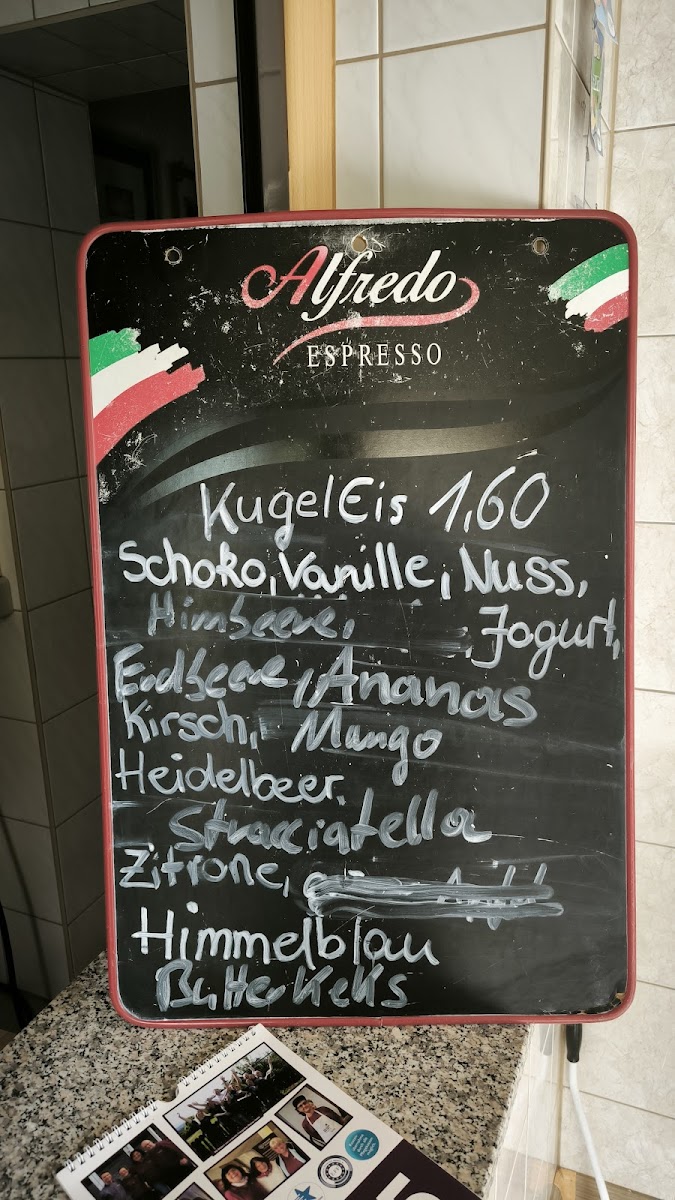 Alfredo
ESPRESSO
KugelEis 1,60
Schoko, Vanille, Nuss,
Himbeere, Jogurt,
Erdbeere, Ananas
Kirsch, Mango
Heidelbeer,
Stracciatella
Zitrone,
Himmelblau
Butterkeks